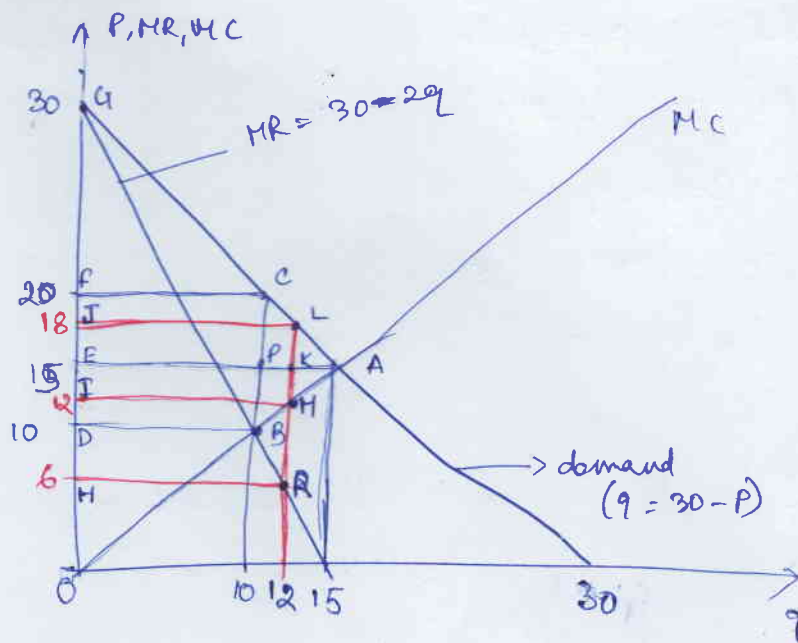 P, MR, MC
30 G
MR = 30-2q
MC
F
20
C
J
18
L
E
P
K
A
15
I
12
M
10
D
B
6
R
H
demand
(q = 30 - P)
0
10
12
15
30
q